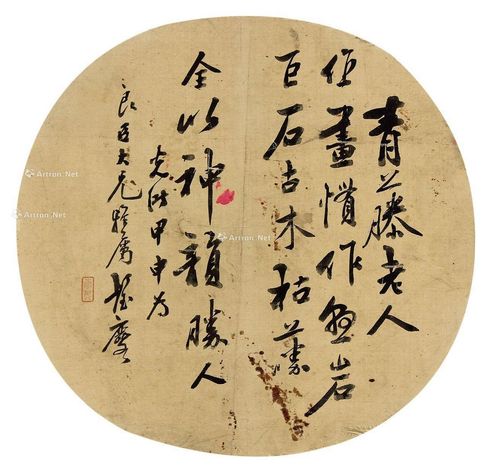 青藤老人
畫慣作懸岩
巨石古木枯藤
全以神韻勝人
光緒甲申為
良臣大兄雅屬
Artron.Net
Artron.Net
Artron.Net
Artron.Net